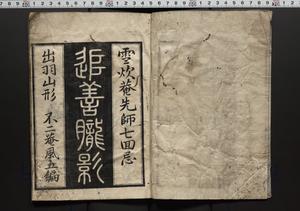 雲炊菴先師七回忌
追善朧影
出羽山形 不二菴風五編